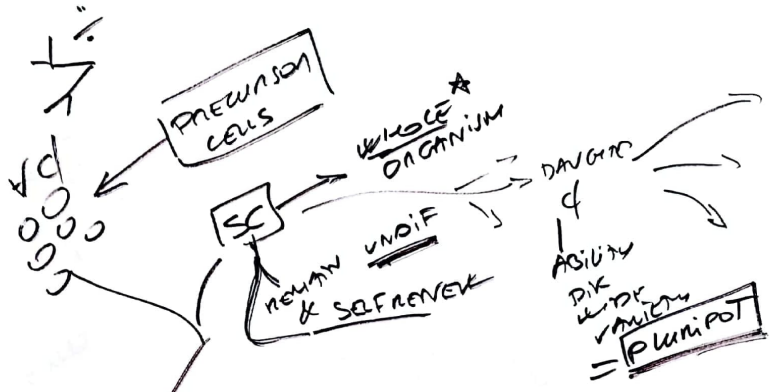 PRECURSOR
CELLS
WHOLE
ORGANISM
SC
REMAIN UNDIF
& SELFRENEW
DAUGHTER
ABILITY
WIDE
VARIETY
= PLURIPOT